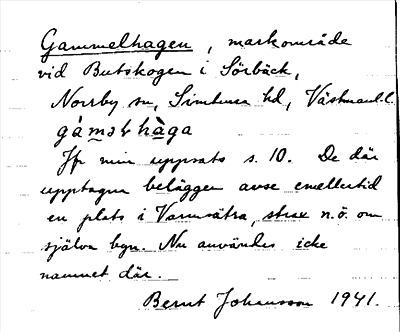 Gammelhagen, markområde
vid Butskogen i Sörbäck,
Norrby sn, Simtuna hd, Västmanl. l.
gàmǝl hàga
Jfr min uppsats s. 10. De där
upptagna beläggen avse emellertid
en plats i Varmsätra, strax n.ö. om
själva byn. Nu användes icke
namnet där.
Bernt Johansson 1941.